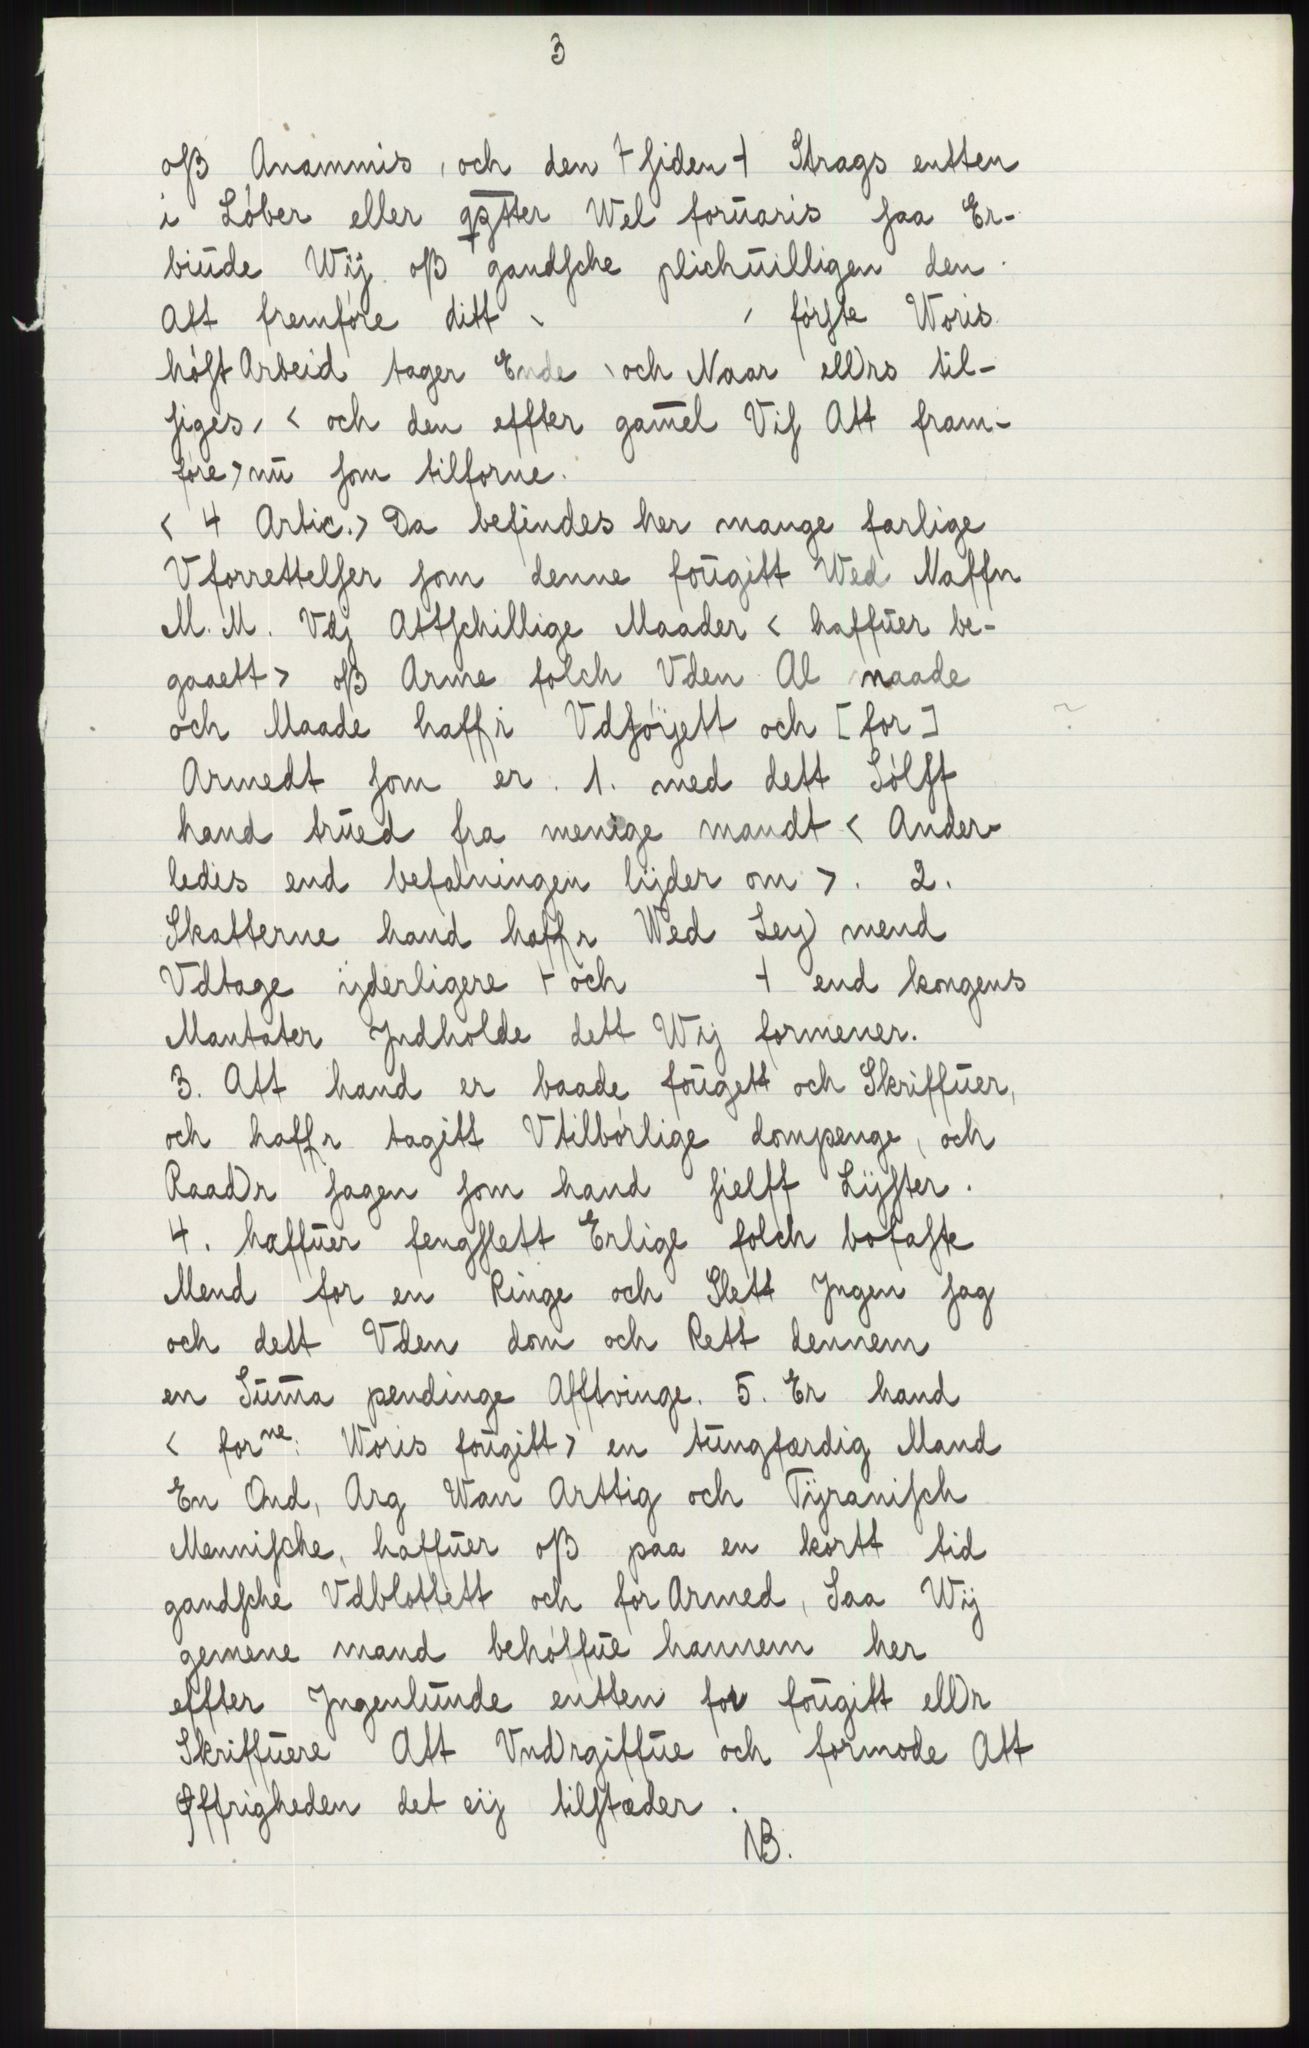 3
oß Anammis, och den + siden + Strags entten
i Löber eller qꝫtter Wel foruaris saa Er-
biude Wij oß gandsche plichuilligen den
Att fremføre ditt første Woris
høst Arbeid tager Ende och Naar ellrs til-
siges, < och den effter gamel Vis Att frem-
føre > nu som tilforne.
< 4 Artic. > Da befindes her mange farlige
Vforrettelser som denne fougitt Wed Naffn
M. M. Vdj Attschillige Maader < haffuer be-
gaaett > oß Arme folch Vden Al naade
och Maade haffr Vdsøyett och [for]
Armedt som er. 1. med dett Sølff
hand trued fra menige mandt < Ander-
ledis end befalningen lyder om >. 2.
Skatterne hand haffr Wed Ley mend
Vdtage yderligere + och + end kongens
Mantater Jndholde dett Wij formener.
3. Att hand er baade fougett och Skriffuer,
och haffr tagitt Vtilbørlige dompenge, och
Raadr sagen som hand sielff Lyster.
4. haffuer fengslett Erlige folch bofaste
Mend for en Ringe och Slett Jngen sag
och dett Vden dom och Rett dennem
en Suma pendinge Afftvinge. 5. Er hand
< forne: Woris fougitt > en tungfærdig Mand
En Ond, Arg Wan Arttig och Tyranisch
Mennische, haffuer oß paa en kortt tid
gandsche Vdblottett och for Armed, Saa Wij
gemene mand behøffue hannem her
effter Jngenlunde entten for fougitt ellr
Skriffuere Att Vndrgiffue och formode Att
Øffrigheden det eij tilstæder.
NB.